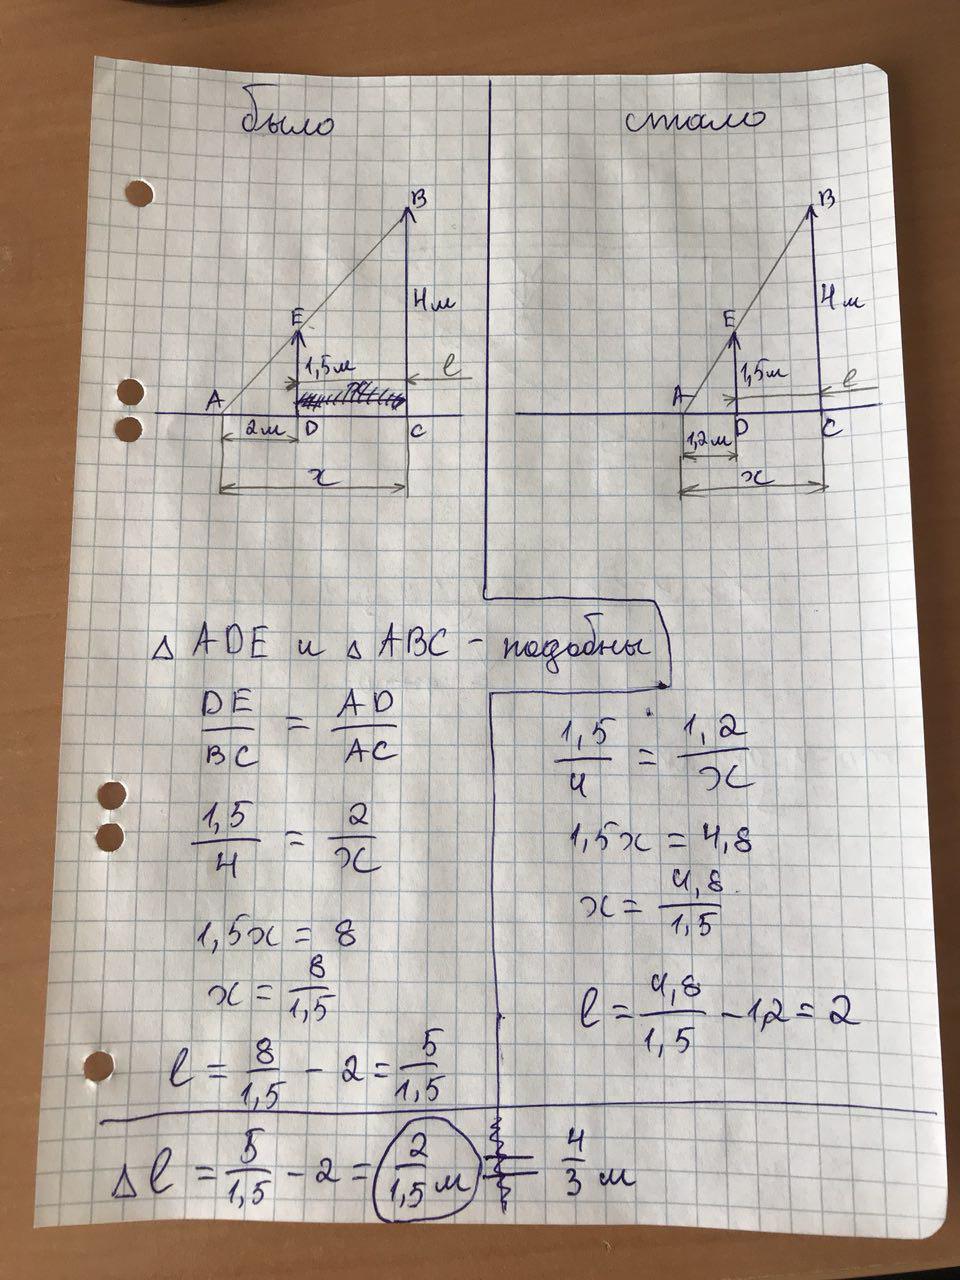 было
стало
B
B
4м
4м
E
E
1,5м
1,5м
l
l
A
A
2м
D
C
1,2м
D
C
x
x
△ ADE и △ ABC - подобны
DE/BC = AD/AC
1,5/4 = 2/x
1,5x = 8
x = 8/1,5
l = 8/1,5 - 2 = 5/1,5
1,5/4 = 1,2/x
1,5x = 4,8
x = 4,8/1,5
l = 4,8/1,5 - 1,2 = 2
△l = 5/1,5 - 2 = 2/1,5 м = 4/3 м